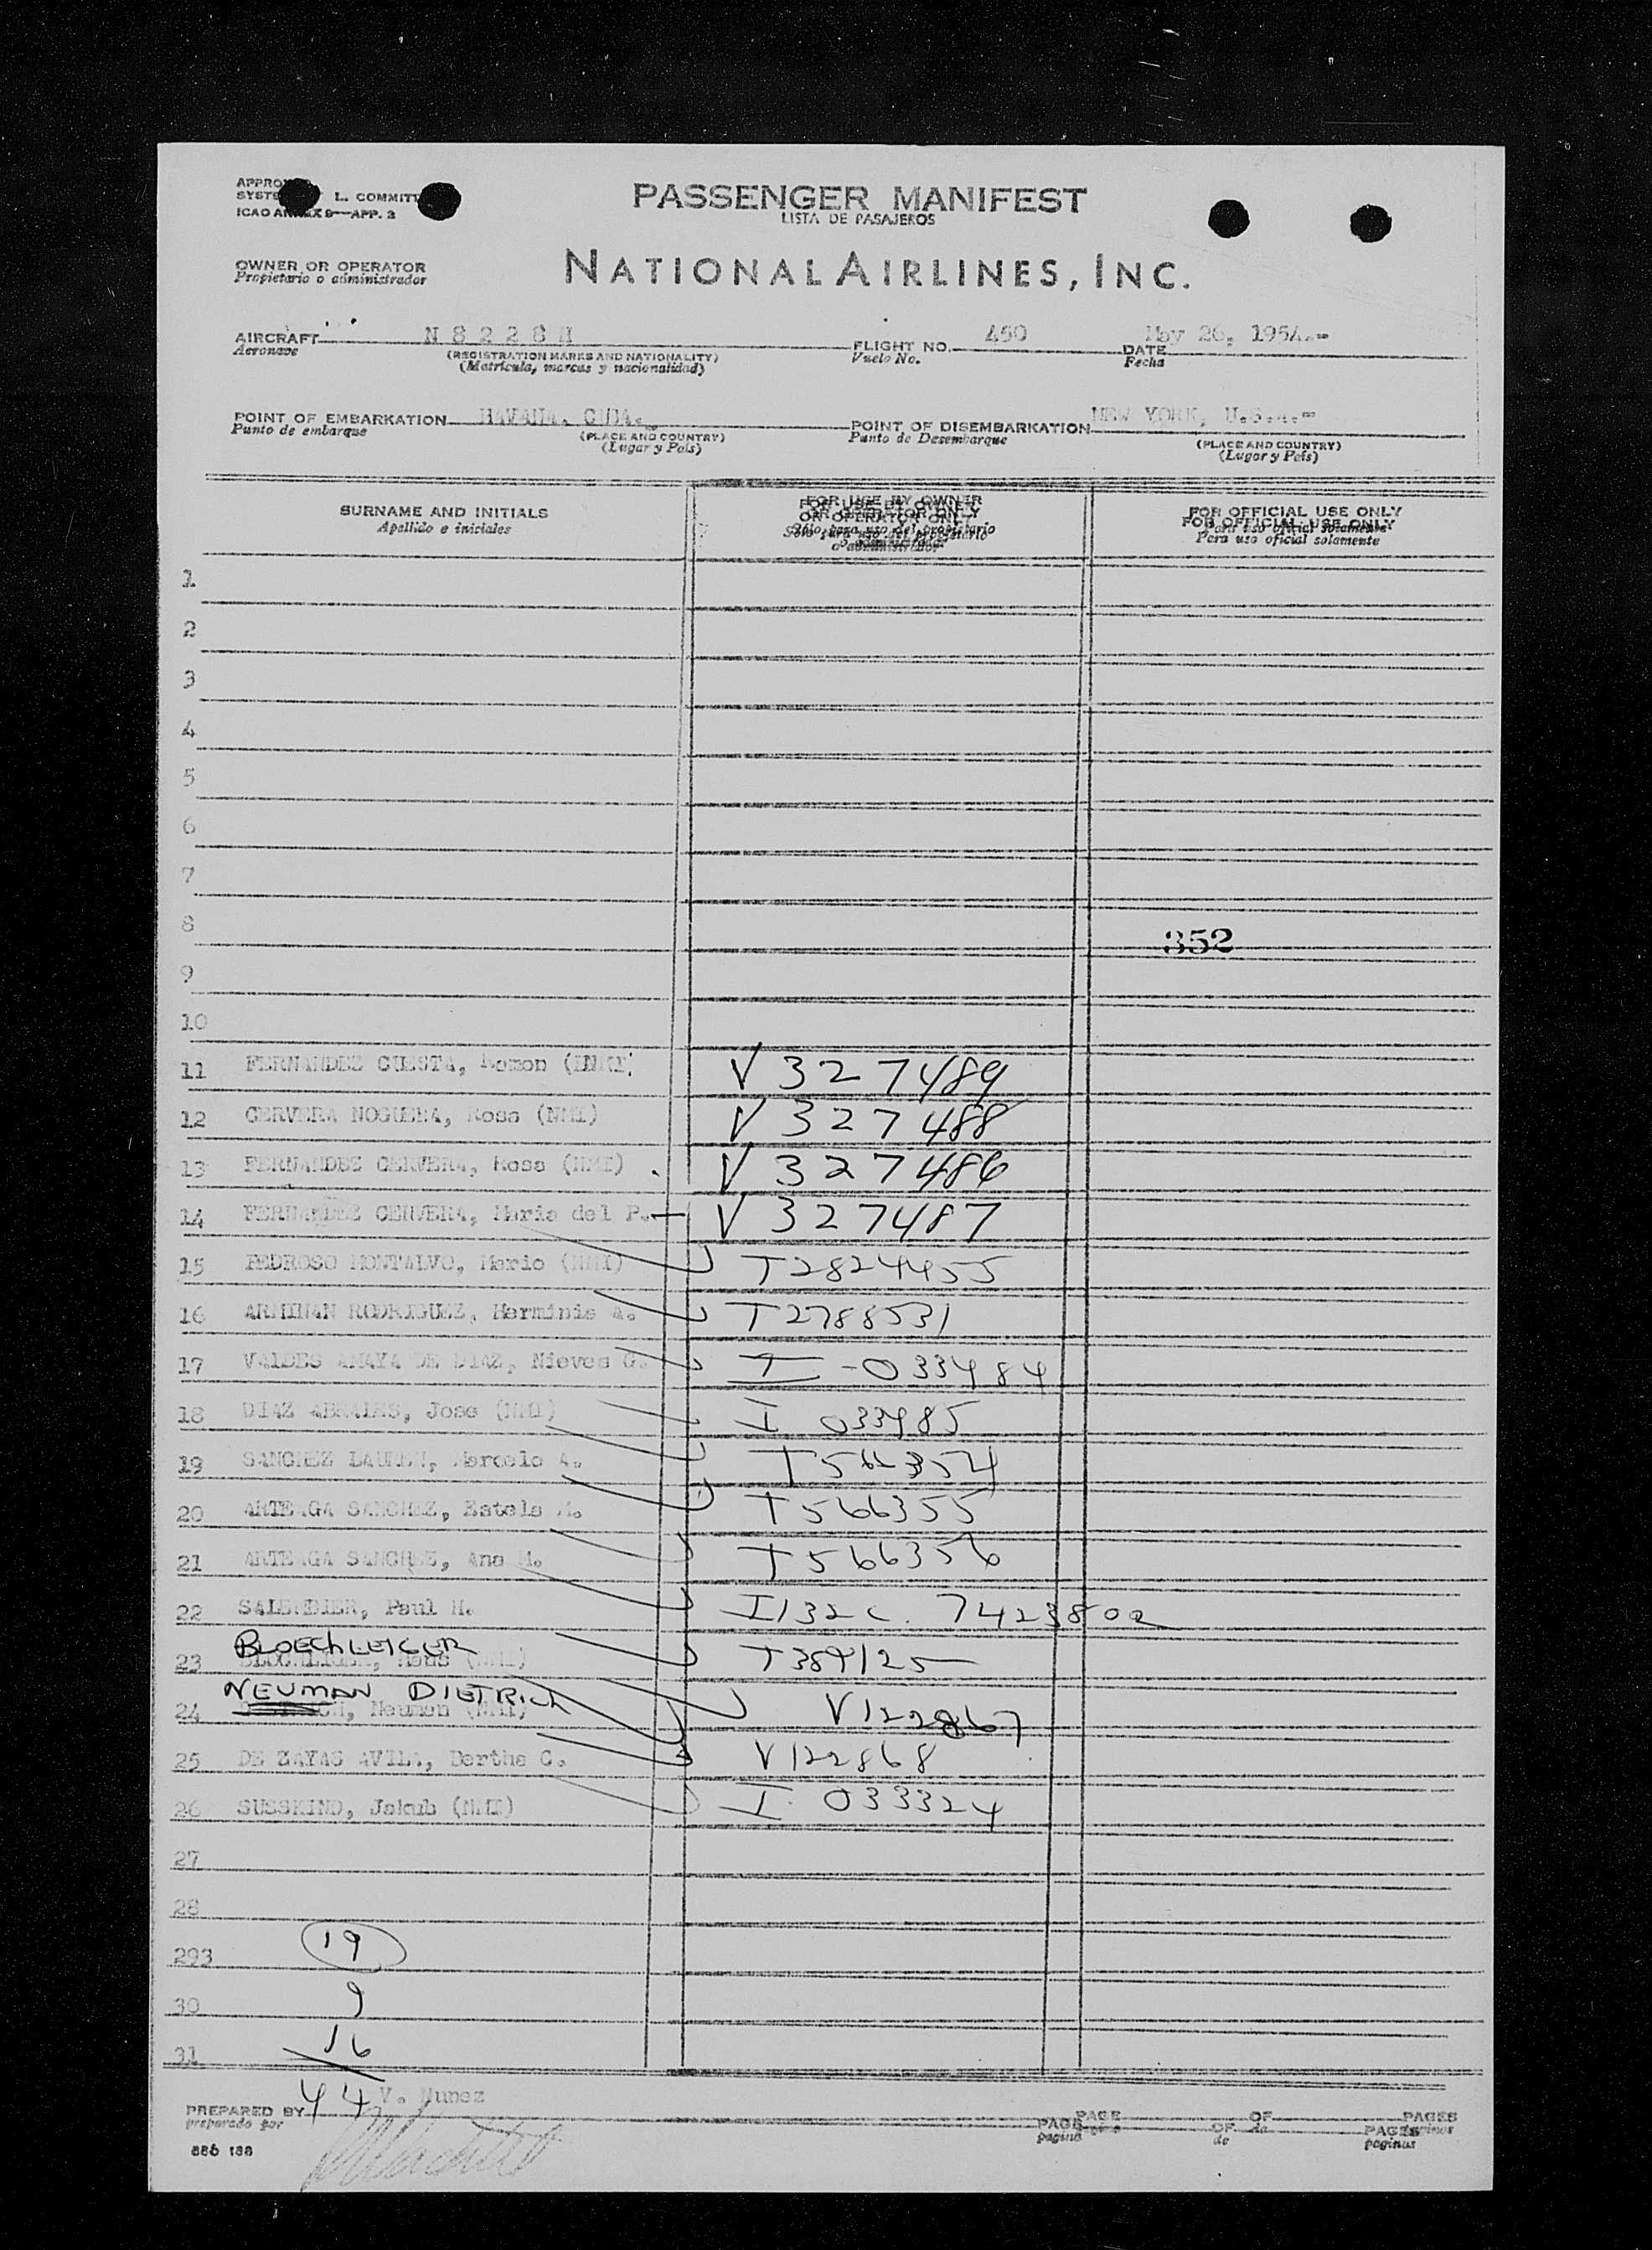 PASSENGER MANIFEST
LISTA DE PASAJEROS
ICAO ANNEX 9—APP. 3
OWNER OR OPERATOR
Propietario o administrador
NATIONAL AIRLINES, INC.
AIRCRAFT N 8 2 2 8 H FLIGHT NO. 450 DATE May 26, 1954.-
Aeronave (REGISTRATION MARKS AND NATIONALITY) Vuelo No. Fecha
(Matrícula, marcas y nacionalidad)
POINT OF EMBARKATION HAVANA, CUBA. POINT OF DISEMBARKATION NEW YORK, U.S.A.-
Punto de embarque (PLACE AND COUNTRY) Punto de Desembarque (PLACE AND COUNTRY)
(Lugar y País) (Lugar y País)
SURNAME AND INITIALS FOR USE BY OWNER OR OPERATOR ONLY FOR OFFICIAL USE ONLY
Apellido e iniciales Sólo para uso del propietario o administrador Para uso oficial solamente
1
2
3
4
5
6
7
8 352
9
10
11 FERNANDEZ CUESTA, Ramon V 327489
12 CERVERA NOGUERA, Rosa (NMI) V 327488
13 FERNANDEZ CERVERA, Rosa (NMI) V 327486
14 FERNANDEZ CERVERA, Maria del P. V 327487
15 PEDROSO MONTALVO, Mario (NMI) T2824455
16 ARMINAN RODRIGUEZ, Herminia A. T2788531
17 VALDES ANAYA DE DIAZ, Nieves G. I-033484
18 DIAZ ABRALES, Jose (NMI) I 033485
19 SANCHEZ LAUREN, Marcelo A. T566354
20 ARTEAGA SANCHEZ, Estela M. T566355
21 ARTEAGA SANCHEZ, Ana M. T566356
22 Paul H. I132c. 7423802
BLOECHLEIGER
23 Hans (NMI) T389125
NEUMAN DIETRICH
24 Neuman (NMI) V122867
25 DE ZAYAS AVILA, Bertha C. V122868
26 SUSSKIND, Jakub (NMI) I 033324
27
28
293 19
30 9
31 16
44
V. Nunez
PREPARED BY PAGE OF PAGES
preparado por pagina de paginas
886 188